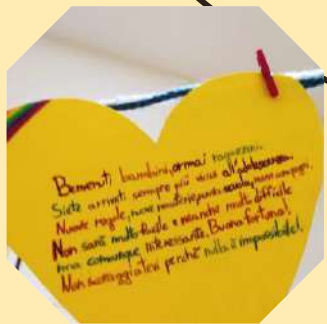 Benvenuti bambini, ormai ragazzini.
Siete arrivati sempre più vicini all'adolescenza.
Nuove regole, nuove materie, nuova scuola, nuovi compagni.
Non sarà molto facile e neanche molto difficile
ma comunque interessante. Buona fortuna!
Non scoraggiatevi perché nulla è impossibile!